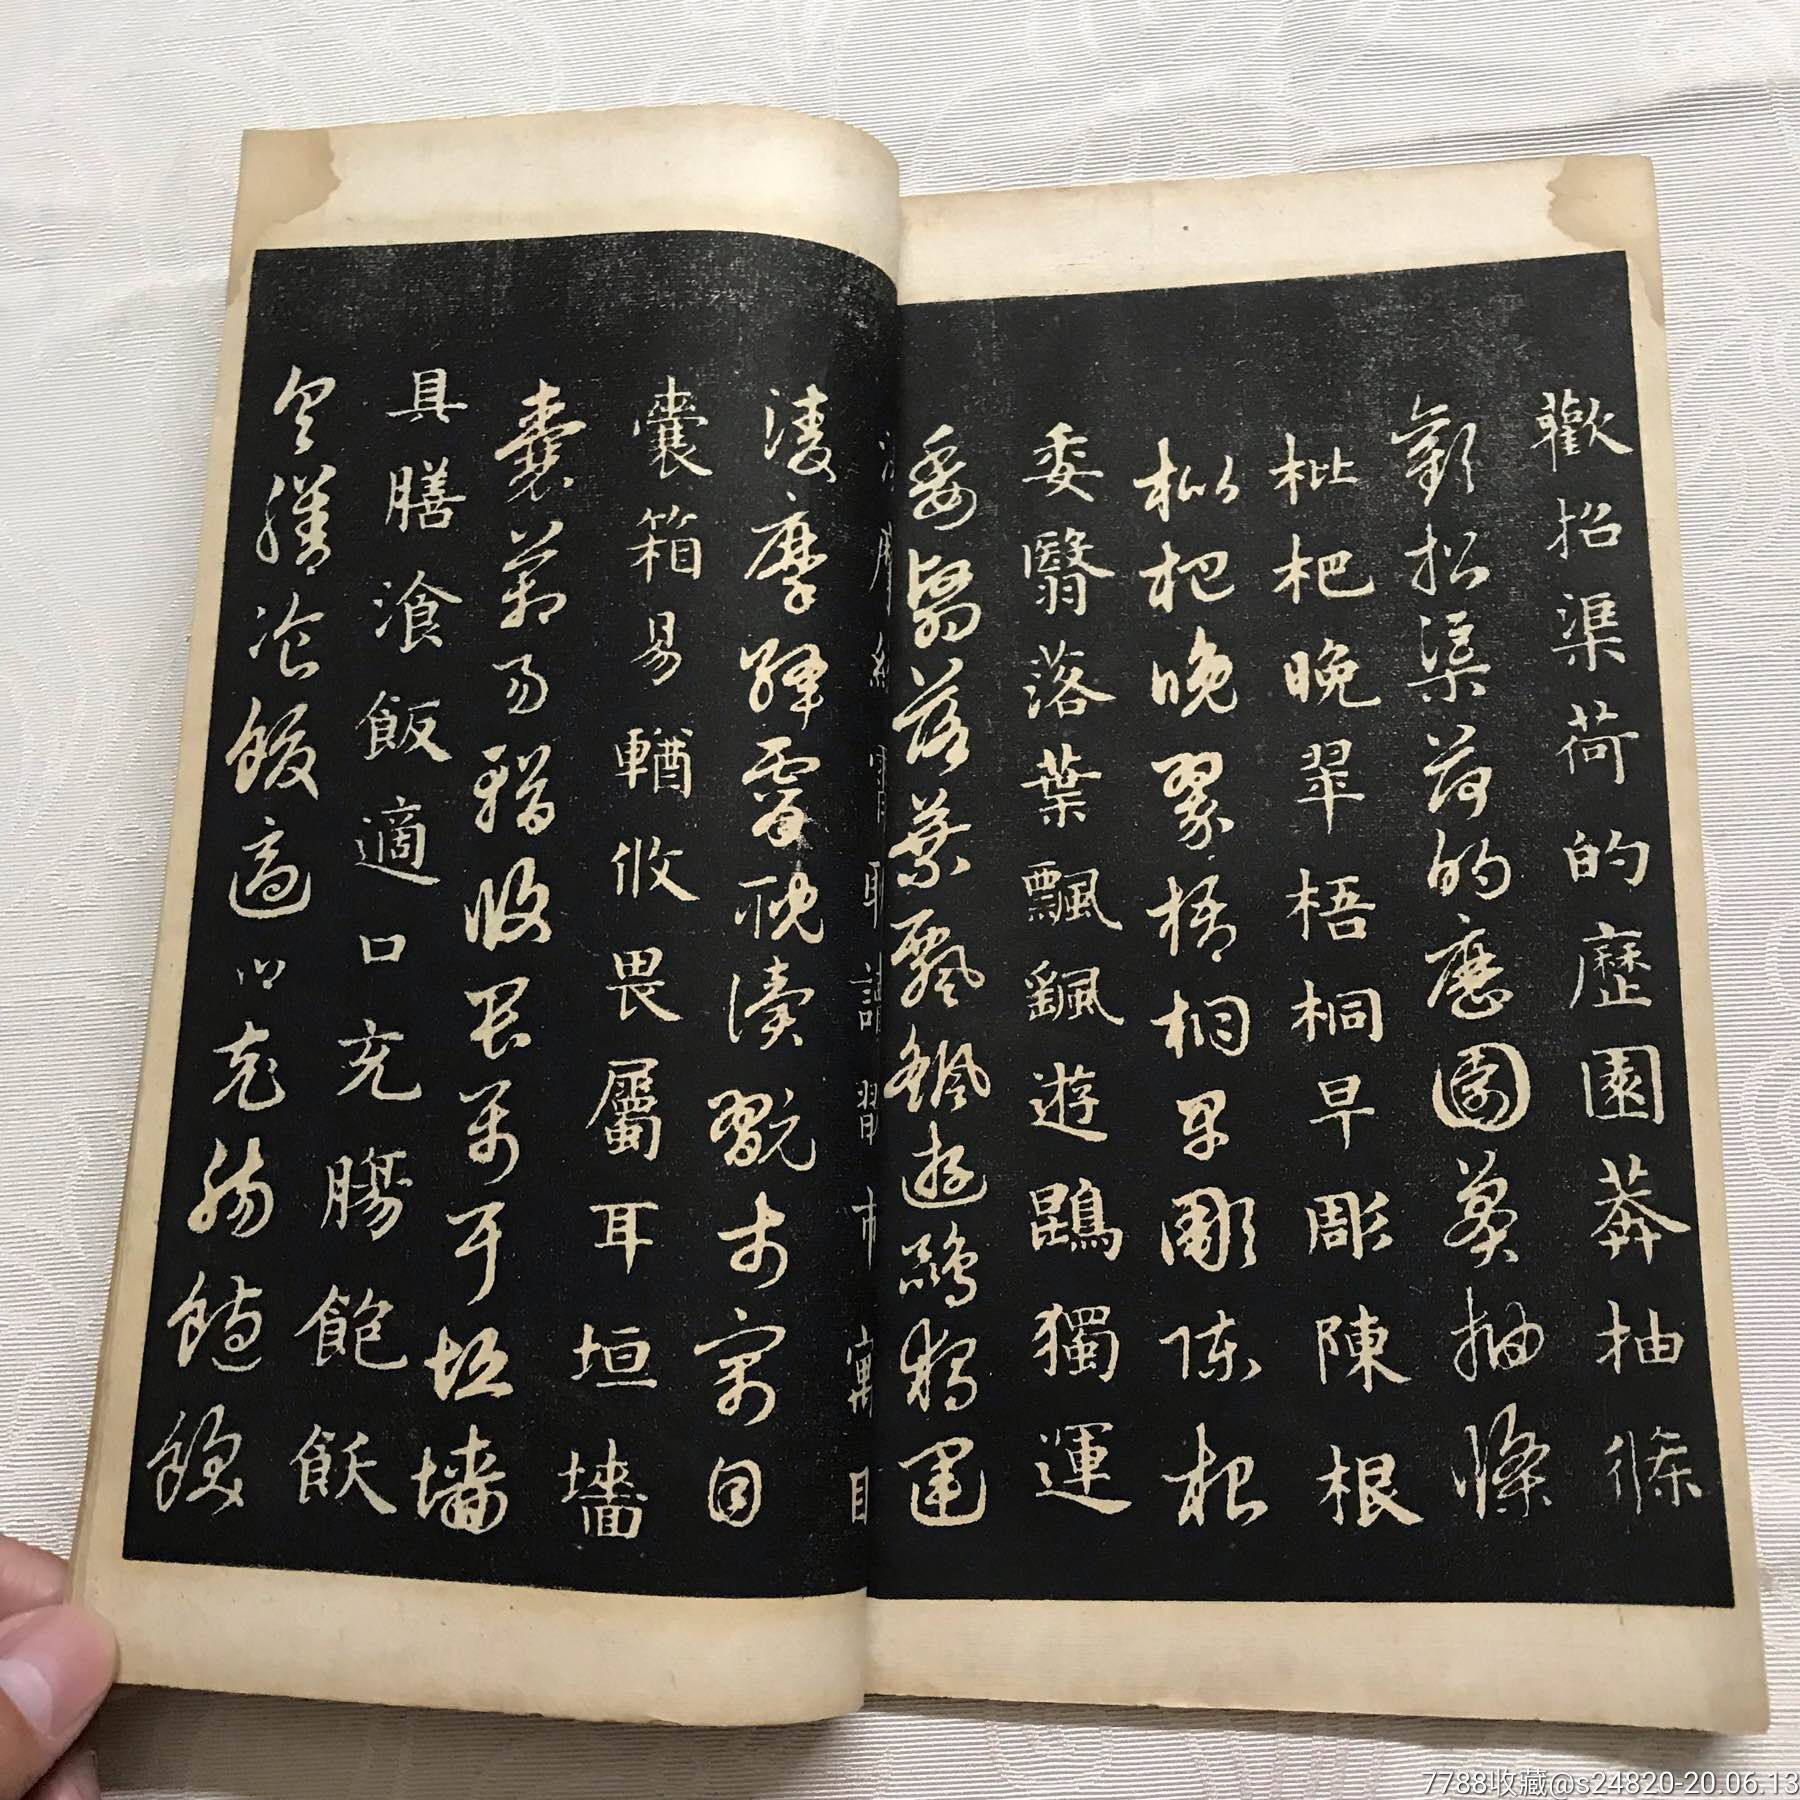 歡招渠荷的歷園莽抽條
歡招渠荷的歷園莽抽條
枇杷晚翠梧桐早彫陳根
枇杷晚翠梧桐早彫陳根
委翳落葉飄颻遊鵾獨運
委翳落葉飄颻遊鵾獨運
凌摩絳霄耽讀翫市寓目
凌摩絳霄耽讀翫市寓目
囊箱易輶攸畏屬耳垣墻
囊箱易輶攸畏屬耳垣墻
具膳飡飯適口充腸飽飫
具膳飡飯適口充腸飽飫
7788收藏@s24820-20.06.13